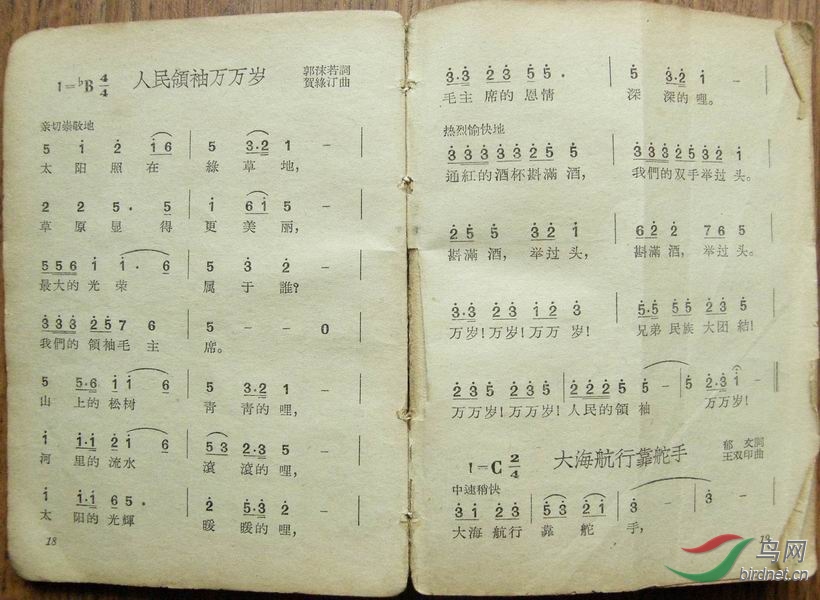 1=♭B 4/4 人民領袖万万岁 郭沫若詞
賀綠汀曲
亲切崇敬地
5 1 2 1 6 5 3·2 1 –
太 阳 照 在 綠 草 地,
2 2 5· 5 1 6 1 5 –
草 原 显 得 更 美 丽,
5 5 6 1 1· 6 5 3 2 –
最大的 光 荣 属 于 誰?
3 3 3 2 5 7 6 5 – – 0
我們的 領袖毛 主 席。
5 5·6 1 1 6 5 3·2 1 –
山 上的 松树 靑 靑的 哩,
1 1·1 2 1 6 5 3 2·3 5 –
河 里的 流水 滾 滾的 哩,
1 1·1 6 5· 2 5·3 2 –
太 阳的 光輝 暖 暖的 哩,
18
3·3 2 3 5 5· 5 3·2 1 –
毛主 席的 恩情 深 深的 哩。
热烈愉快地
3 3 3 3 3 2 5 5 3 3 3 2 5 3 2 1
通紅的酒杯斟滿 酒, 我們的双手举过 头。
2 5 5 3 2 1 6 2 2 7 6 5
斟滿 酒, 举过 头, 斟滿 酒, 举过 头。
3·3 2 3 1 2 3 5·5 5 5 2 3 5
万岁!万岁!万万 岁! 兄弟 民族 大团 結!
2 3 5 2 3 5 2 2 2 5 5 – 5 2·3 1 –
万万岁!万万岁! 人民的領 袖 万万岁!
1=C 2/4 大海航行靠舵手 郁 文詞
王双印曲
中速稍快
3 1 2 3 5 3 2 1 3 – 3 –
大海 航行 靠 舵 手,
19
鸟网
birdnet.cn